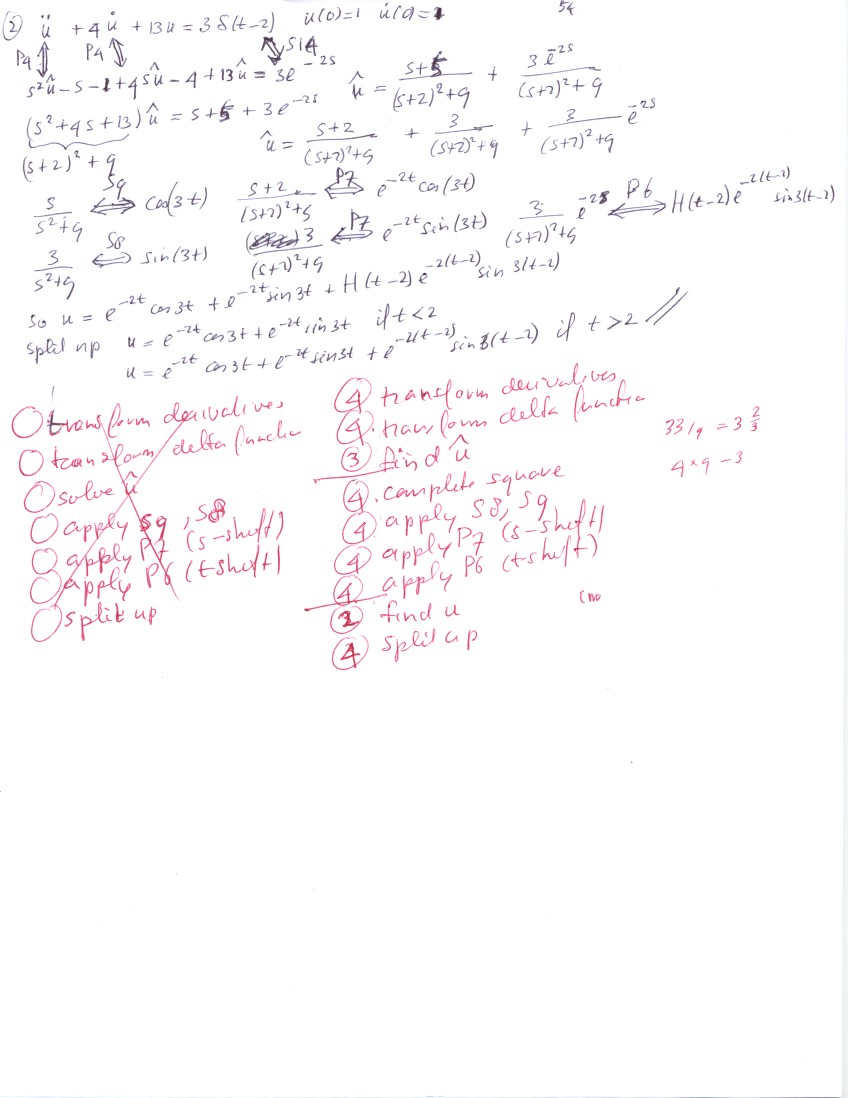 54
② ü + 4u̇ + 13u = 3δ(t-2) u(0)=1 u̇(0)=1
P4 P4 S14
s²û - s - 1 + 4sû - 4 + 13û = 3e^{-2s} û = (s+5)/((s+2)²+9) + 3e^{-2s}/((s+2)²+9)
(s²+4s+13)û = s+5 + 3e^{-2s}
(s+2)²+9 û = (s+2)/((s+2)²+9) + 3/((s+2)²+9) + 3/((s+2)²+9) e^{-2s}
s/(s²+9) ⟺ S9 cos(3t) (s+2)/((s+2)²+9) ⟺ P7 e^{-2t} cos(3t)
3/(s²+9) ⟺ S8 sin(3t) 3/((s+2)²+9) ⟺ P7 e^{-2t} sin(3t) 3/((s+2)²+9) e^{-2s} ⟺ P6 H(t-2) e^{-2(t-2)} sin3(t-2)
so u = e^{-2t} cos 3t + e^{-2t} sin 3t + H(t-2) e^{-2(t-2)} sin 3(t-2)
split up u = e^{-2t} cos 3t + e^{-2t} sin 3t if t<2
u = e^{-2t} cos 3t + e^{-2t} sin 3t + e^{-2(t-2)} sin 3(t-2) if t>2 //
○ transform derivatives
○ transform delta functio
○ solve û
○ apply S9, S8
○ apply P7 (s-shift)
○ apply P6 (t shift)
○ split up
④ transform derivatives
④ transform delta functio
③ find û
④ complete square
④ apply S8, S9
④ apply P7 (s-shift)
④ apply P6 (t shift)
② find u
④ split up
33/9 = 3 2/3
4×9-3
(no